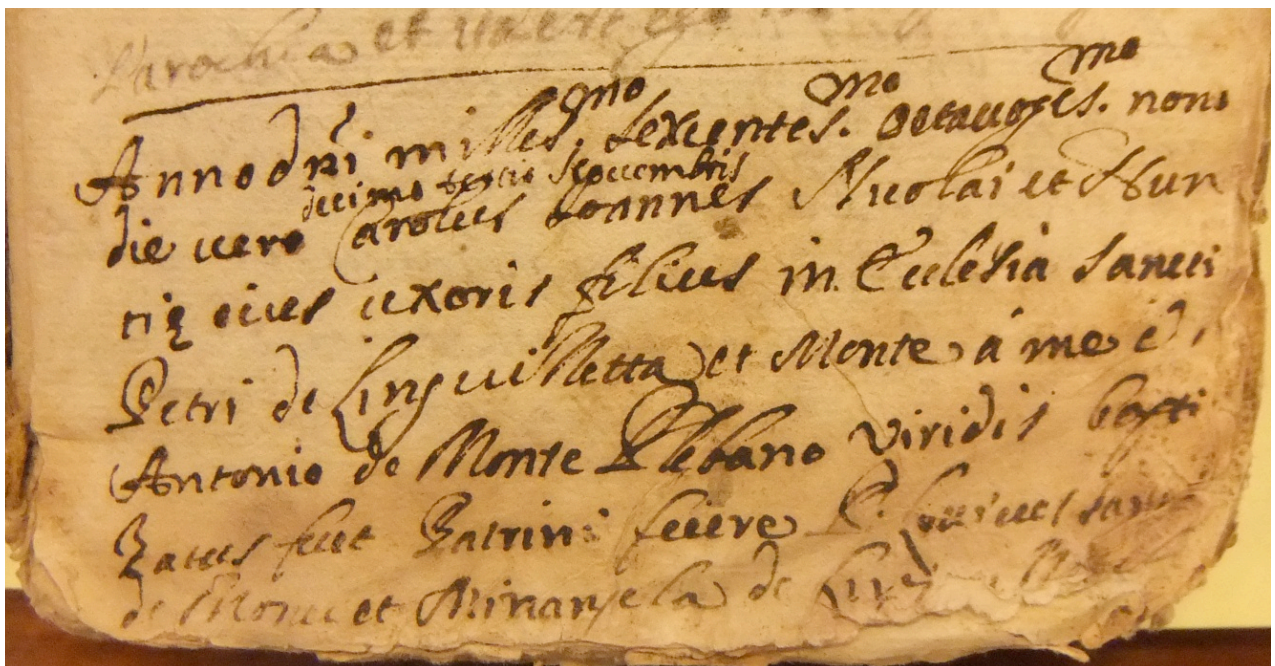 Parochia et
Anno dñi milles.mo sexcentes.mo octuoges.mo nono
die vero decimo tertio Novembris Carolus Joannes Nicolai et Hun
tiæ eius uxoris filius in Ecclesia Sancti
Petri de Linguilletta et Monte à me
Antonio de Monte Plebano Viridis bapti
zatus fuit Patrini fuere
de Monte et Minanjela de